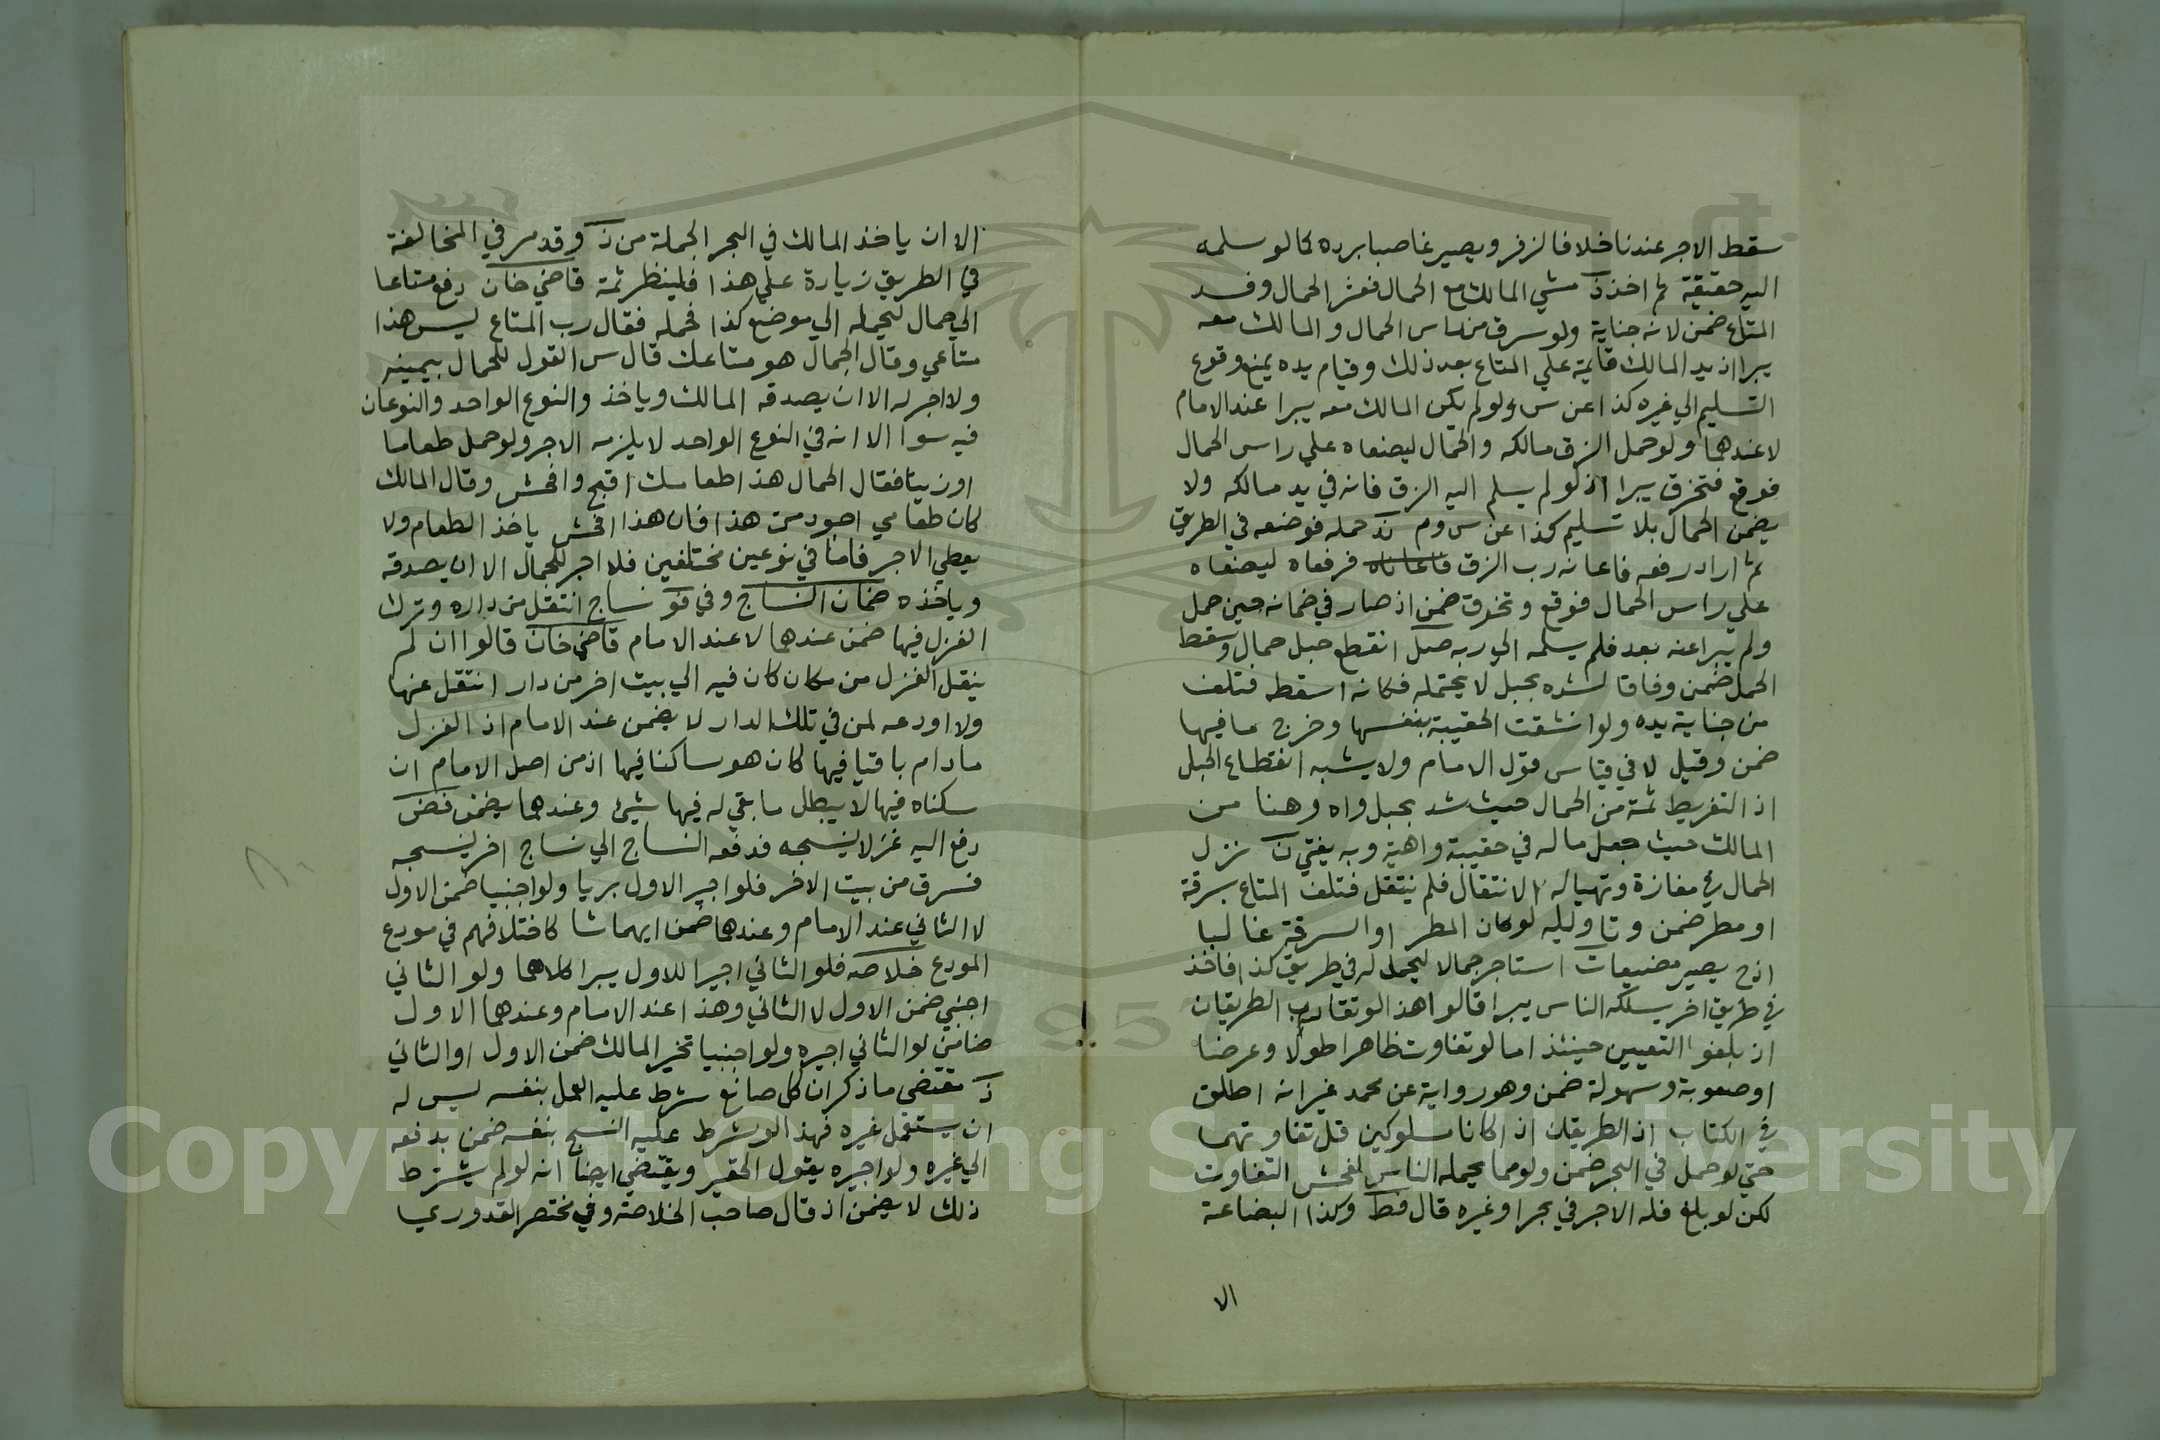 سقط الاجر عندنا خلافا لزفر ويصير غاصبا برده كما لو سلمه
اليه حقيقة ثم اخذ ذ مشي المالك مع الحمال فعثر الحمال وفسد
المتاع ضمن لانه جناية ولو سرق من راس الحمال والمالك معه
يبرا اذ يد المالك قايمة علي المتاع بعد ذلك وقيام يده يمنع وقوع
التسليم الي غيره كذا عن س ولو لم يكن المالك معه يبرا عند الامام
لا عندهما ولو حمل الزق مالكه والحمال ليضعاه علي راس الحمال
فوقع فتخرق يبرا اذ لو لم يسلم اليه الزق فانه في يد مالكه ولا
يضمن الحمال بلا تسليم كذا عن س وم حمله فوضعه في الطريق
ثم اراد رفعه فاعانه رب الزق فرفعاه ليضعاه
علي راس الحمال فوقع وتخرق ضمن اذ صار في ضمانه حين حمل
ولم يبرا عنه بعد فلم يسلمه الي ربه انقطع حبل حمال وسقط
الحمل ضمن وفاقا لشده بحبل لا يحتمله فكانه اسقطه فتلف
من جناية يده ولو انشقت الحقيبة بنفسها وخرج ما فيها
ضمن وقيل لا في قياس قول الامام ولا يشبه انقطاع الحبل
اذ التفريط ثمة من الحمال حيث شد بحبل واه وهنا من
المالك حيث جعل ماله في حقيبة واهية وبه يفتي ن نزل
الحمال في مفازة وتهيا له الانتقال فلم ينتقل فتلف المتاع بسرقة
او مطر ضمن وتاويله لو كان المطر او السرقة غالبا
اذ ح يصير مضيعا استاجر حمالا ليحمل له في طريق كذا فاخذ
في طريق اخر يسلكه الناس يبرا قالوا هذا لو تقارب الطريقان
اذ يلغو التعيين حينئذ اما لو تفاوت ظاهرا طولا وعرضا
او صعوبة وسهولة ضمن وهو رواية عن محمد غير انه اطلق
في الكتاب اذ الطريقان اذا كانا مسلوكين قل تفاوتهما
حتي لو حمل في البحر ضمن ولو مما يحمله الناس لفحش التفاوت
لكن لو بلغ فله الاجر في بحر او غيره قال قط وكذا البضاعة
الا
الا ان ياخذ المالك في البحر الجملة من ذ وقد مر في المخالفة
في الطريق زيادة علي هذا فلينظر ثمة قاضي خان دفع متاعا
الي حمال ليحمله الي موضع كذا فحمله فقال رب المتاع ليس هذا
متاعي وقال الحمال هو متاعك قال س القول للحمال بيمينه
ولا اجر له الا ان يصدقه المالك وياخذ والنوع الواحد والنوعان
فيه سوا الا انه في النوع الواحد لا يلزمه الاجر ولو حمل طعاما
او زيتا فقال الحمال هذا طعامك اقبح وافحش وقال المالك
كان طعامي اجود من هذا فان هذا افحش ياخذ الطعام ولا
يعطي الاجر فاما في نوعين مختلفين فلا اجر للحمال الا ان يصدقه
وياخذه ضمان النساج وفي فو نساج انتقل من داره وترك
الغزل فيها ضمن عندهما لا عند الامام قاضي خان قالوا ان لم
ينقل الغزل من مكان كان فيه الي بيت اخر من دار انتقل عنها
ولا اودعه لمن في تلك الدار لا يضمن عند الامام اذ الغزل
مادام باقيا فيها كان هو ساكنا فيها اذ من اصل الامام ان
سكناه فيها لا يبطل ما بقي له فيها شيئ وعندهما يضمن فض
دفع اليه غزلا لينسجه فدفعه النساج الي نساج اخر لينسجه
فسرق من بيت الاخر فلو اجير الاول بريا ولو اجنبيا ضمن الاول
لا الثاني عند الامام وعندهما ضمن ايهما شا كاختلافهم في مودع
المودع خلاصه فلو الثاني اجيرا للاول يبرا كلاهما ولو الثاني
اجنبي ضمن الاول لا الثاني وهذا عند الامام وعندهما الاول
ضامن لو الثاني اجيره ولو اجنبيا تخير المالك ضمن الاول او الثاني
ذ مقتضي ما ذكر ان كل صانع شرط عليه العمل بنفسه ليس له
ان يستعمل غيره فهذا لو شرط عليه النسج بنفسه ضمن بدفعه
الي غيره ولو اجيره يقول الحقير ويقتضي ايضا انه لو لم يشترط
ذلك لا يضمن اذ قال صاحب الخلاصة وفي مختصر القدوري
Copyright © King Saud University
1957